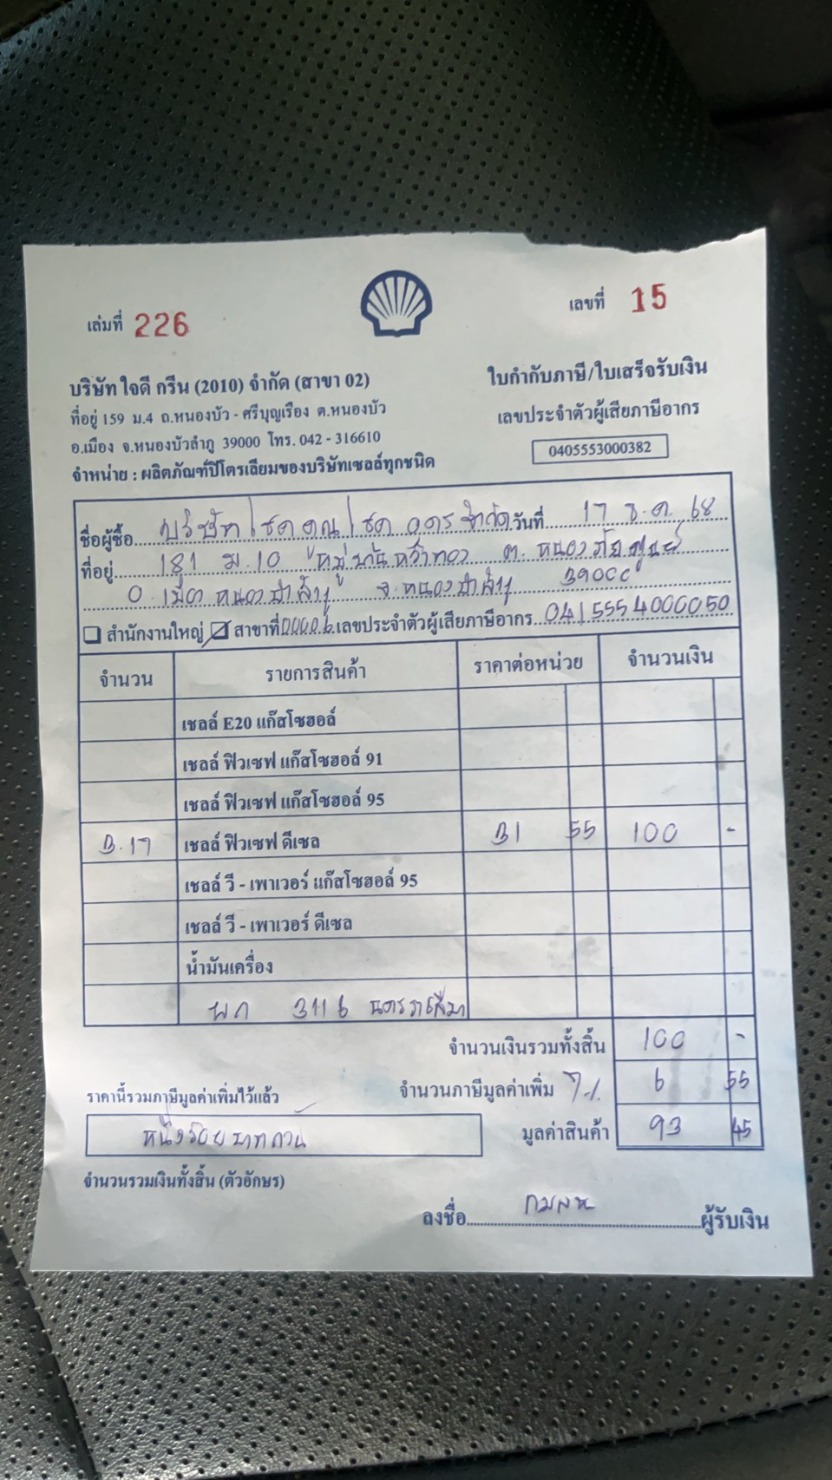 เล่มที่ 226
เลขที่ 15
บริษัท ใจดี กรีน (2010) จำกัด (สาขา 02)
ที่อยู่ 159 ม.4 ถ.หนองบัว - ศรีบุญเรือง ต.หนองบัว
อ.เมือง จ.หนองบัวลำภู 39000 โทร. 042 - 316610
จำหน่าย : ผลิตภัณฑ์ปิโตรเลียมของบริษัทเชลล์ทุกชนิด
ใบกำกับภาษี/ใบเสร็จรับเงิน
เลขประจำตัวผู้เสียภาษีอากร
0405553000382
ชื่อผู้ซื้อ บริษัท โชคคูณโชค อุดร จำกัด วันที่ 17 ธ.ค. 68
ที่อยู่ 181 ม.10 "หมู่บ้าน ต. หนองภัยศูนย์
อ. เมือง หนองบัวลำภู จ. หนองบัวลำภู 39000
สำนักงานใหญ่ สาขาที่ 00006 เลขประจำตัวผู้เสียภาษีอากร 0415554000050
จำนวน รายการสินค้า ราคาต่อหน่วย จำนวนเงิน
เชลล์ E20 แก๊สโซฮอล์
เชลล์ ฟิวเซฟ แก๊สโซฮอล์ 91
เชลล์ ฟิวเซฟ แก๊สโซฮอล์ 95
3.17 เชลล์ ฟิวเซฟ ดีเซล 31 55 100 -
เชลล์ วี - เพาเวอร์ แก๊สโซฮอล์ 95
เชลล์ วี - เพาเวอร์ ดีเซล
น้ำมันเครื่อง
ผก 3116 นครราชสีมา
จำนวนเงินรวมทั้งสิ้น 100 -
ราคานี้รวมภาษีมูลค่าเพิ่มไว้แล้ว จำนวนภาษีมูลค่าเพิ่ม 7% 6 55
หนึ่งร้อยบาทถ้วน มูลค่าสินค้า 93 45
จำนวนรวมเงินทั้งสิ้น (ตัวอักษร)
ลงชื่อ กมลท ผู้รับเงิน